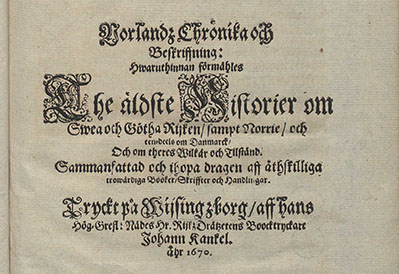 Norlandz Chrönika och
Beskriffning:
Hwaruthinnan förmähles
The äldste Historier om
Swea och Götha Rijken/ sampt Norrie/ och
een deels om Danmarck/
Och om theres Wilkår och Tilstånd.
Sammanfattad och ihopa dragen aff åthskilliga
trowärdiga Böcker/ Skriffter och Handlingar.
Tryckt på Wijsingzborg/ aff hans
Hög-Grefl: Nådes Hr. RijksDrätzetens Boocktryckare
Johann Kankel.
Åhr 1670.